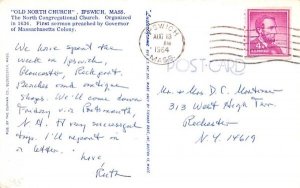 "OLD NORTH CHURCH", IPSWICH, MASS.
The North Congregational Church. Organized
in 1634. First sermon preached by Governor
of Massachusetts Colony.
We have spent the
week in Ipswich,
Gloucester, Rockport,
Beaches and antique
Shops. We'll come down
Friday via Portsmouth,
N.H. A very successful
trip. I'll report in
a letter.
Love,
Ruth
IPSWICH
AUG 13
PM
1964
MASS.
POST CARD
Mr & Mrs D.C.
313 West High Terr.
Rochester
N.Y. 14619